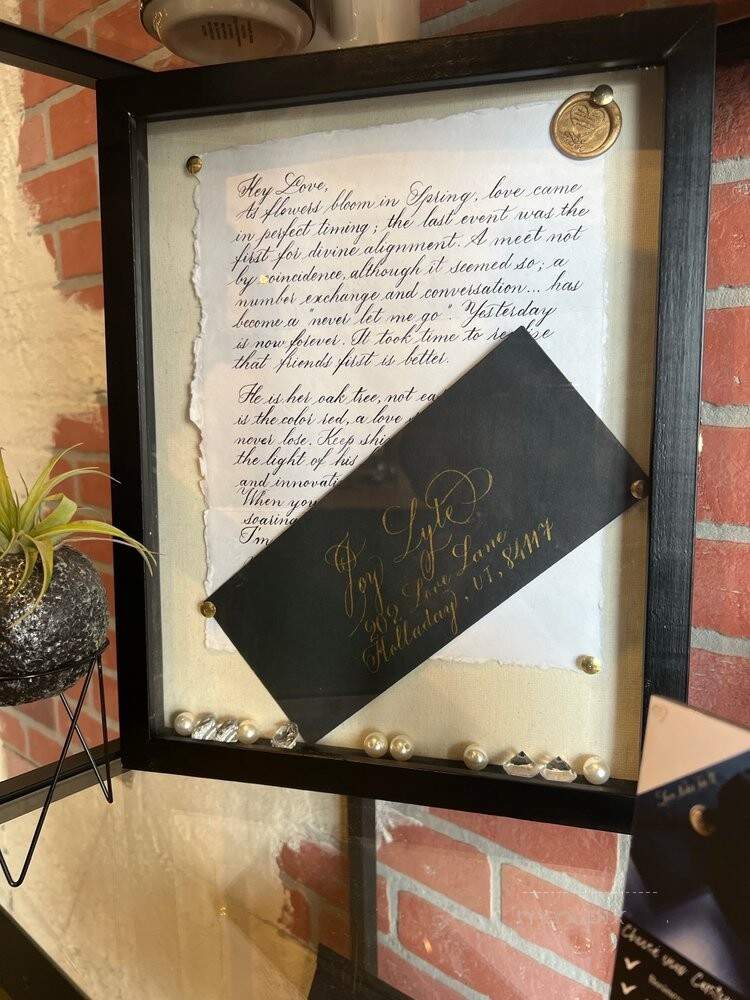 Hey Love,
As flowers bloom in Spring, love came
in perfect timing; the last event was the
first for divine alignment. A meet not
by coincidence, although it seemed so; a
number exchange and conversation... has
become a "never let me go". Yesterday
is now forever. It took time to
that friends first is better.
He is her oak tree, not
is the color red, a love
never lose. Keep
the light of his
and
When you
soaring
I'm
Joy Lyte
909 Love Lane
Holladay, UT, 84117
Choose your